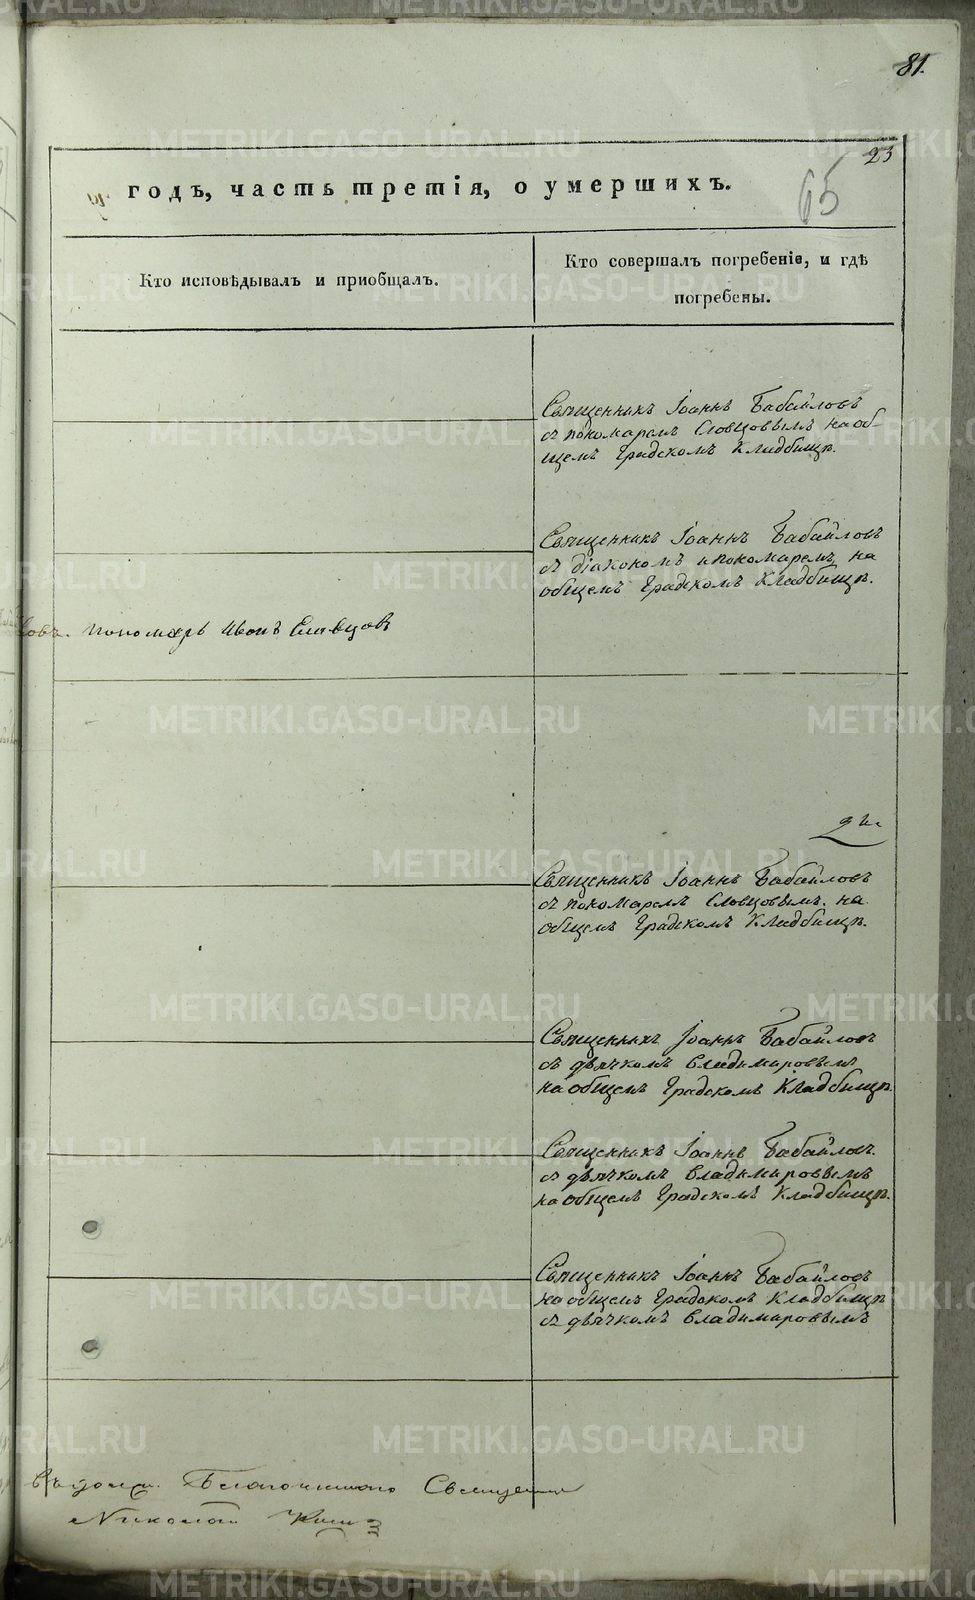 81.
23
65
годъ, часть третія, о умершихъ.
Кто исповѣдывалъ и приобщалъ.
Кто совершалъ погребеніе, и гдѣ
погребены.
Священникъ Іоаннъ Бабайловъ
съ пономаремъ Словцовымъ на об-
щемъ Градскомъ Кладбищѣ.
Священникъ Іоаннъ Бабайловъ
съ діакономъ и пономаремъ на
общемъ Градскомъ Кладбищѣ.
овъ. пономарь Иванъ Словцовъ
Священникъ Іоаннъ Бабайловъ
съ пономаремъ Словцовымъ на
общемъ Градскомъ Кладбищѣ.
Священникъ Іоаннъ Бабайловъ
съ дьячкомъ Владимировымъ
на общемъ Градскомъ Кладбищѣ
Священникъ Іоаннъ Бабайловъ.
съ дьячкомъ Владимировымъ
на общемъ Градскомъ Кладбищѣ.
Священникъ Іоаннъ Бабайловъ
на общемъ Градскомъ Кладбищѣ
съ дьячкомъ Владимировымъ
Благочинного Священник
Николай
METRIKI.GASO-URAL.RU